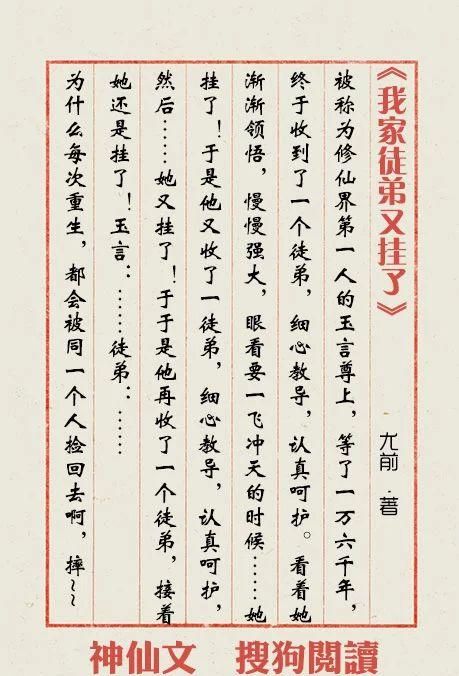 《我家徒弟又挂了》
尤前·著
被称为修仙界第一人的玉言尊上，等了一万六千年，
终于收到了一个徒弟，细心教导，认真呵护。看着她
渐渐领悟，慢慢强大，眼看要一飞冲天的时候……她
挂了！于是他又收了一徒弟，细心教导，认真呵护，
然后……她又挂了！于于是他再收了一个徒弟，接着
她还是挂了！玉言：……徒弟：……
为什么每次重生，都会被同一个人捡回去啊，摔~~
神仙文 搜狗閲讀